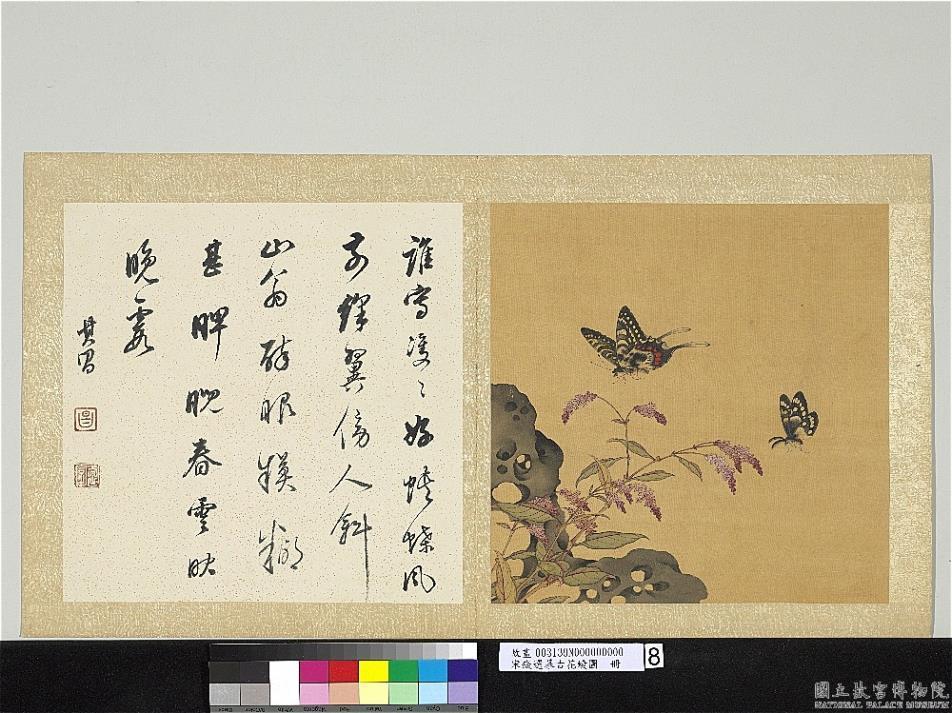 誰寫雙〻好蛺蝶風
前翼傍人斜
山翁醉眼模糊
甚睥睨春雲映
晚霞
其昌
故畫 003139N000000000
摹古花圖 冊
8
國立故宮博物院
NATIONAL PALACE MUSEUM